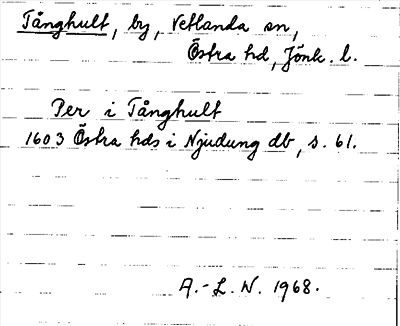 Tånghult, by, Vetlanda sn,
Östra hd, Jönk. l.
Per i Tånghult
1603 Östra hds i Njudung db, s. 61.
A.-L. N. 1968.